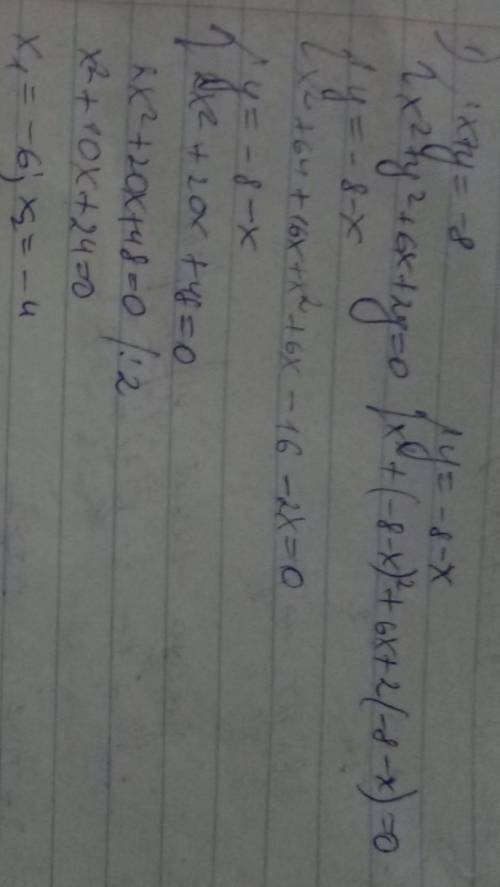 1) { x+y=-8
{ x²+y²+6x+2y=0 { y=-8-x
{ x²+(-8-x)²+6x+2(-8-x)=0
{ y=-8-x
{ x²+64+16x+x²+6x-16-2x=0
{ y=-8-x
{ 2x²+20x+48=0
2x²+20x+48=0 /:2
x²+10x+24=0
x₁=-6; x₂=-4